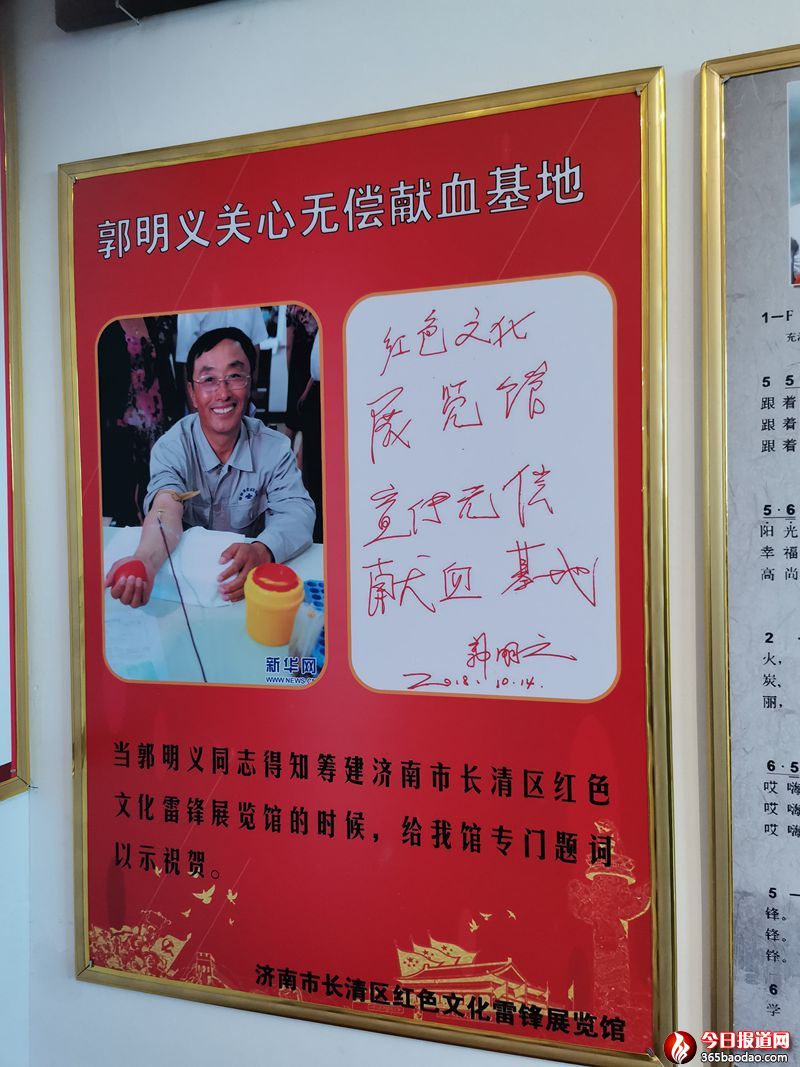 郭明义关心无偿献血基地
红色文化
展览馆
宣传无偿
献血基地
郭明义
2018.10.14.
新华网
WWW.NEWS.C
当郭明义同志得知筹建济南市长清区红色
文化雷锋展览馆的时候，给我馆专门题词
以示祝贺。
济南市长清区红色文化雷锋展览馆
1—F
5 5
跟着
跟着
跟着
5·6
阳光
幸福
高尚
2 -
火,
炭、
丽，
6·5
哎嗨
哎嗨
哎嗨
5 —
锋。
锋。
锋。
6
学
今日报道网
365baodao.com